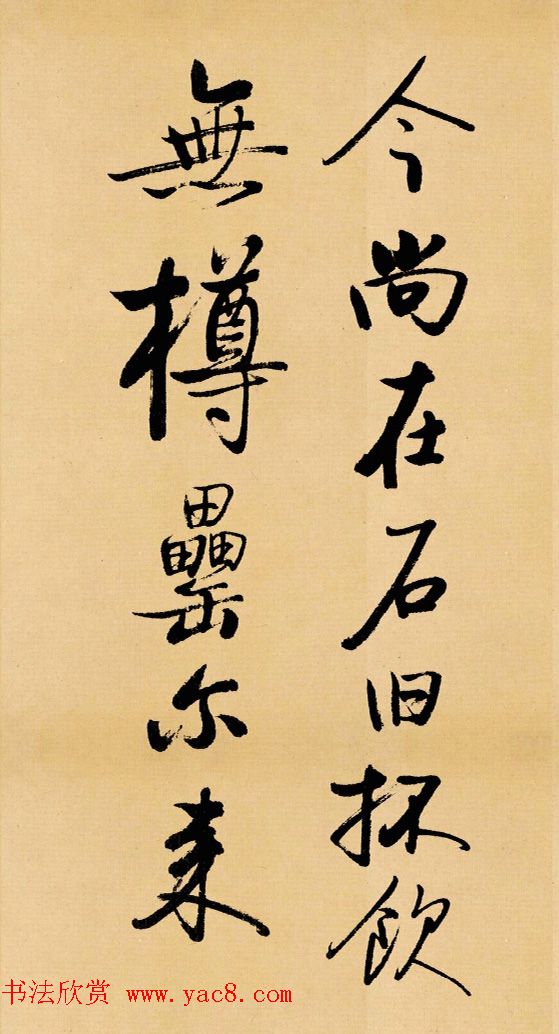 今尚在石旧抔飲
無樽罍尔来
书法欣赏 www.yac8.com